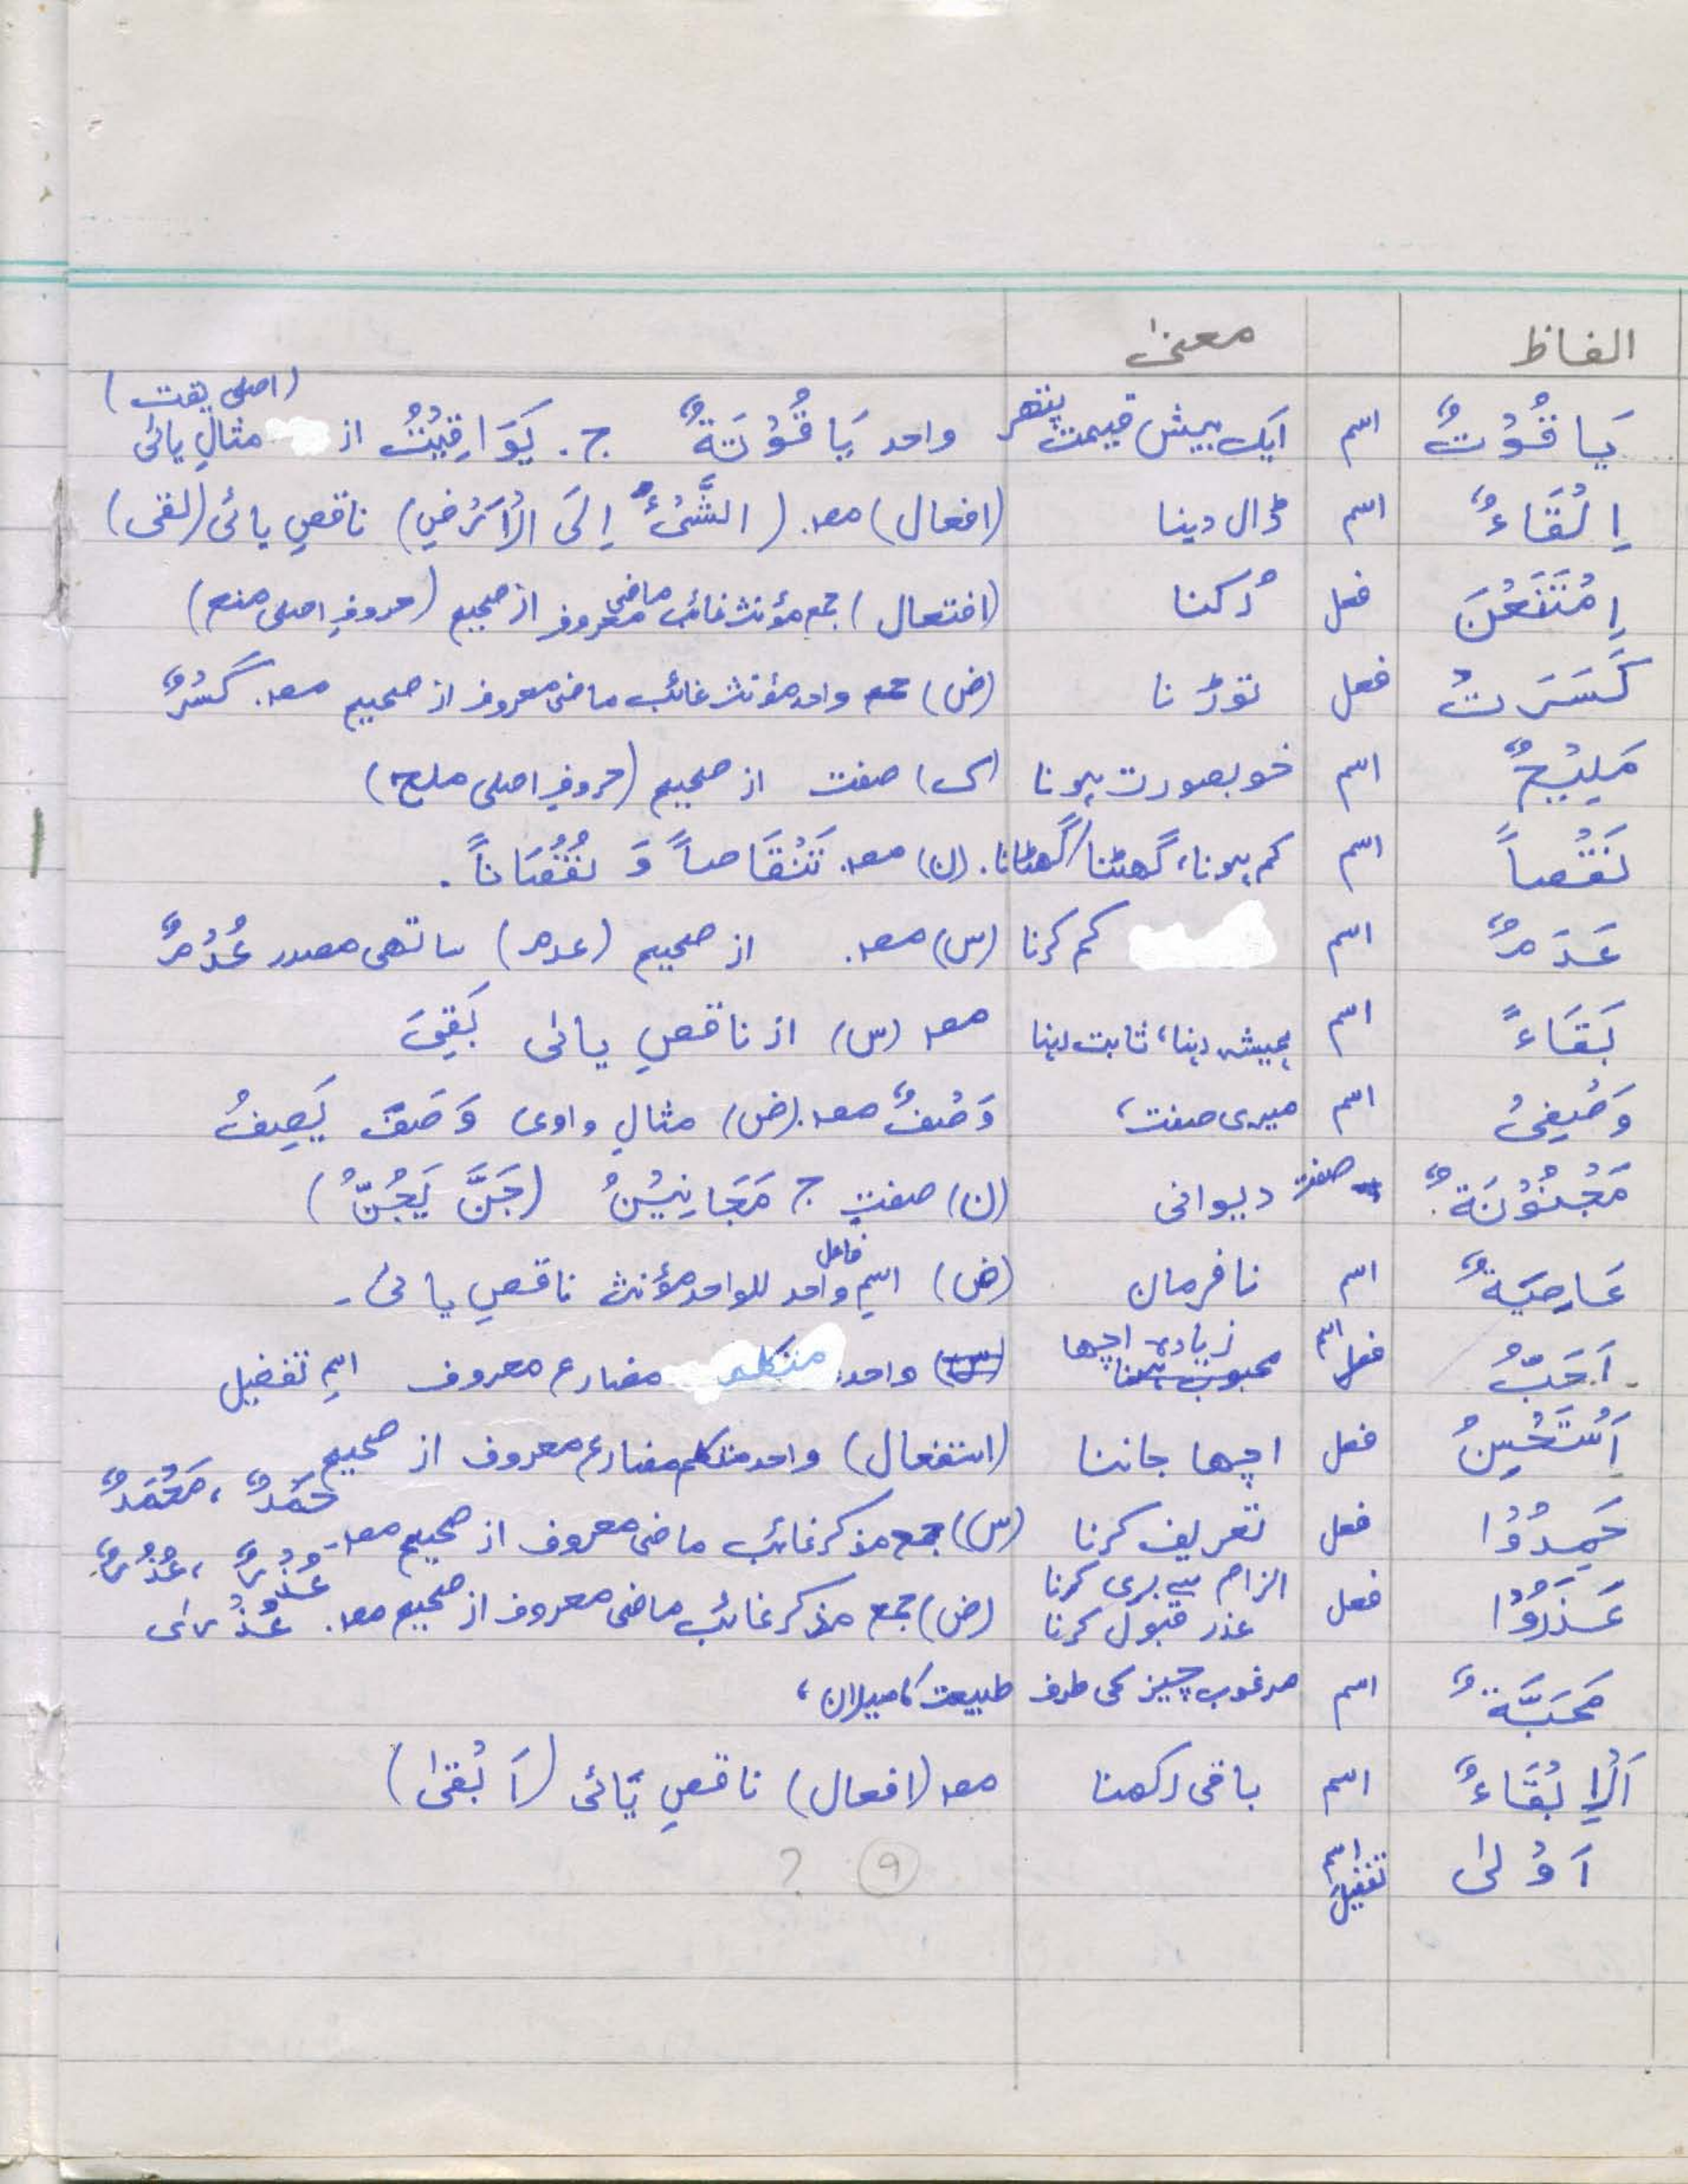 الفاظ معنیٰ
(اصلی یقت)
یَاقُوْتٌ اسم ایک بیش قیمت پتھر واحد یَاقُوْتَةٌ ج. یَوَاقِیْتُ از مثالِ یائی
اِلْقَاءٌ اسم ڈال دینا (افعال) مصد. (الشَّیْءُ اِلَی الْاَرْضِ) ناقصِ یائی (لقی)
اِمْتَنَعْنَ فعل رُکنا (افتعال) جمع مؤنث غائب ماضی معروف از صحیح (حروفِ اصلی منع)
کَسَرَتْ فعل توڑنا (ض) واحد مؤنث غائب ماضی معروف از صحیح مصد. کَسْرٌ
مَلِیْحٌ اسم خوبصورت ہونا (ک) صفت از صحیح (حروفِ اصلی ملح)
نَقْصاً اسم کم ہونا، گھٹنا/گھٹانا. (ن) مصد. تَنْقَاصاً وَ نُقْصَاناً.
عَدَمٌ اسم کم کرنا (س) مصد. از صحیح (عدم) ساتھی مصدر عُدْمٌ
بَقَاءً اسم ہمیشہ رہنا، ثابت رہنا مصد (س) از ناقصِ یائی بَقِیَ
وَصْفِیْ اسم میری صفت، وَصْفٌ مصد. (ض) مثالِ واوی وَصَفَ یَصِفُ
مَجْنُوْنَةٌ صفت دیوانی (ن) صفتِ ج مَجَانِیْنُ (جَنَّ یَجُنُّ)
عَاصِیَةٌ اسم نافرمان (ض) اسمِ فاعل واحد للواحد مؤنث ناقصِ یائی۔
اَحَبُّ فعل اسم محبوب رکھنا زیادہ اچھا (س) واحد متکلم مضارع معروف اسمِ تفضیل
اَسْتَحْسِنُ فعل اچھا جاننا (استفعال) واحد متکلم مضارع معروف از صحیح
حَمِدُوْا فعل تعریف کرنا (س) جمع مذکر غائب ماضی معروف از صحیح مصد۔ حَمْدٌ، مَحْمَدٌ
عَذَرُوْا فعل الزام سے بری کرنا
عذر قبول کرنا (ض) جمع مذکر غائب ماضی معروف از صحیح مصد. عُذْرٌ، عُذُرٌ
مَحَبَّةٌ اسم مرغوب چیز کی طرف طبیعت کا میلان،
اَلْاِبْقَاءُ اسم باقی رکھنا مصد (افعال) ناقصِ یَائی (اَبْقیٰ)
اَوْلیٰ اسم تفضیل ۹ ?